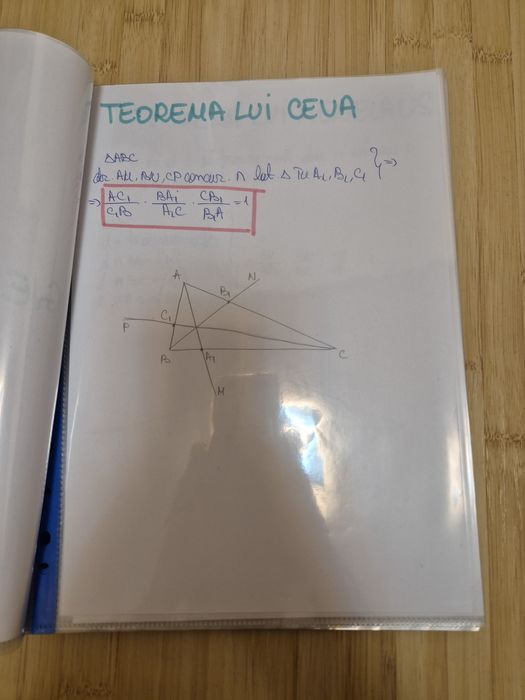 TEOREMA LUI CEVA
△ABC
dr. AM, BN, CP concur. ∩ lat. △ în A₁, B₁, C₁ } ⇒
⇒ AC₁/C₁B · BA₁/A₁C · CB₁/B₁A = 1
A N
B₁
C₁
P
B A₁ C
M